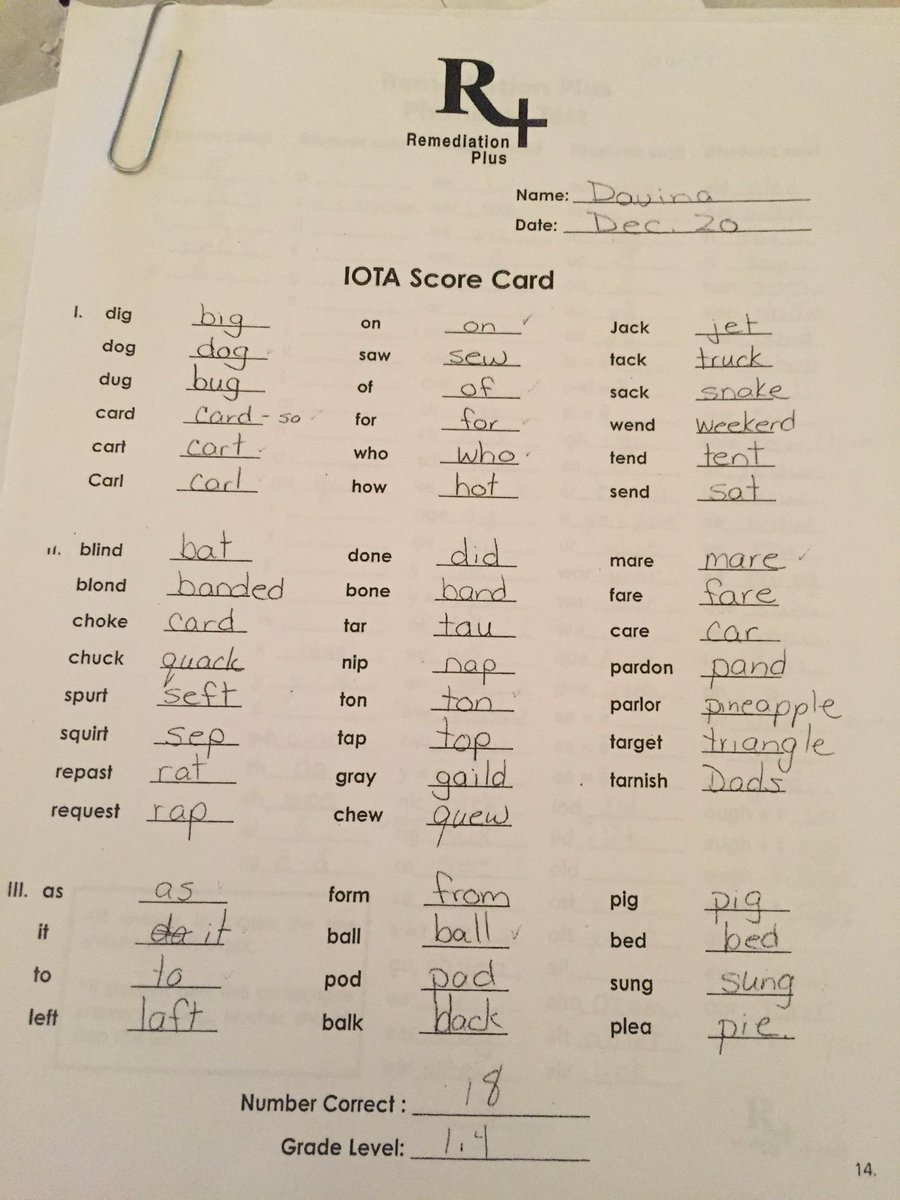 R+
Remediation
Plus
Name: Davina
Date: Dec. 20
IOTA Score Card
I. dig big on on ✓ Jack jet
dog dog ✓ saw sew tack truck
dug bug of of ✓ sack snake
card card - so ✓ for for ✓ wend weekend
cart cart ✓ who who ✓ tend tent
Carl carl how hot send sat
II. blind bat done did mare mare ✓
blond banded bone band fare fare
choke card tar tau care car
chuck quack nip nap pardon pand
spurt seft ton ton ✓ parlor pineapple
squirt sep tap top target triangle
repast rat gray gaild tarnish Dads
request rap chew quew
III. as as ✓ form from pig pig
it it ball ball ✓ bed bed
to to ✓ pod pad sung sung
left laft balk back plea pie.
Number Correct : 18
Grade Level: 1.4
14.